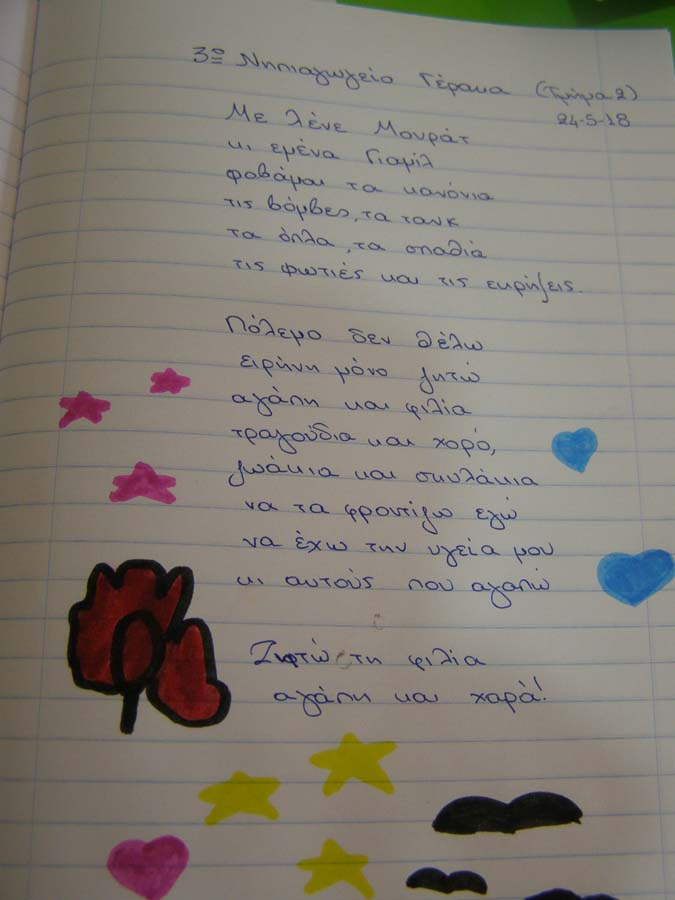 3ο Νηπιαγωγείο Γέρακα (Τμήμα 2)
24-5-18
Με λένε Μουράτ
κι εμένα Γιαμίλ
φοβάμαι τα κανόνια
τις βόμβες, τα τανκ
τα όπλα, τα σπαθιά
τις φωτιές και τις εκρήξεις.
Πόλεμο δεν θέλω
ειρήνη μόνο ζητώ
αγάπη και φιλία
τραγούδια και χορό,
ζωάκια και σκυλάκια
να τα φροντίζω εγώ
να έχω την υγεία μου
κι αυτούς που αγαπώ
τη φιλία
αγάπη και χαρά!